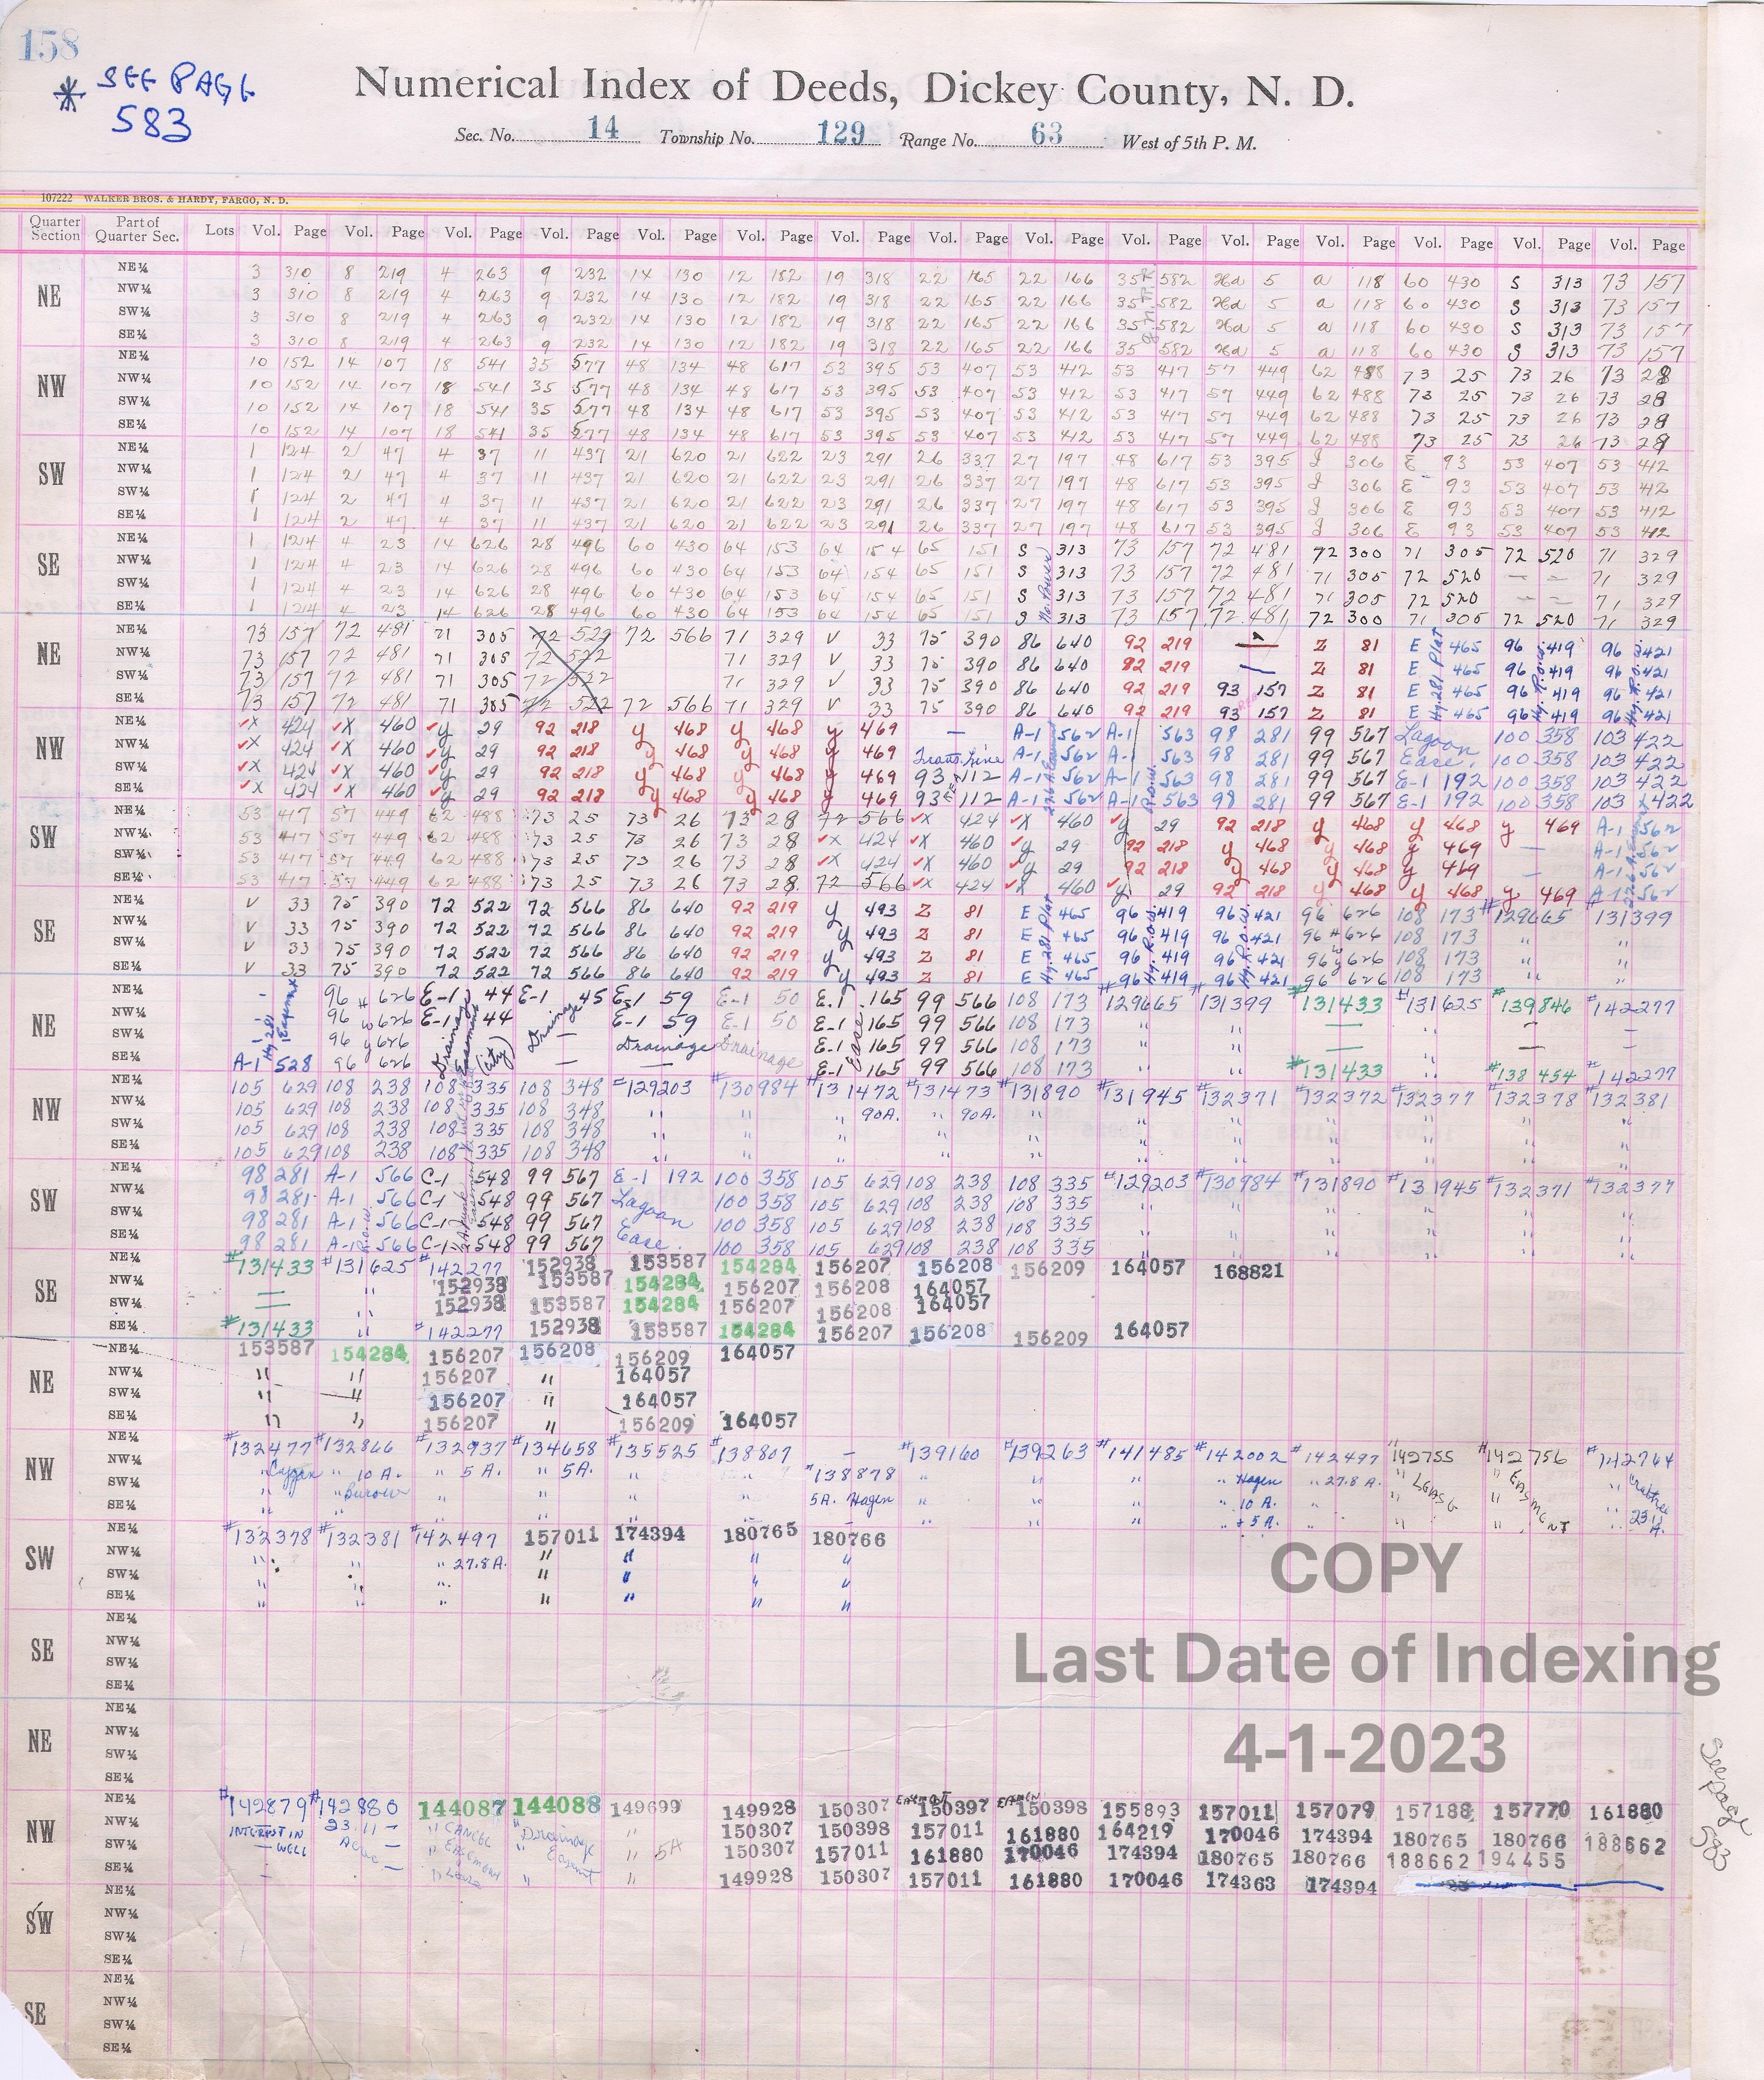 158
* SEE PAGE
583
Numerical Index of Deeds, Dickey County, N. D.
Sec. No. 14 Township No. 129 Range No. 63 West of 5th P. M.
107222 WALKER BROS. & HARDY, FARGO, N. D.
Quarter Section Part of Quarter Sec. Lots Vol. Page Vol. Page Vol. Page Vol. Page Vol. Page Vol. Page Vol. Page Vol. Page Vol. Page Vol. Page Vol. Page Vol. Page Vol. Page Vol. Page Vol. Page
NE
NE¼ 3 310 8 219 4 263 9 232 14 130 12 182 19 318 22 165 22 166 35 582 5 a 118 60 430 S 313 73 157
NW¼ 3 310 8 219 4 263 9 232 14 130 12 182 19 318 22 165 22 166 35 582 5 a 118 60 430 S 313 73 157
SW¼ 3 310 8 219 4 263 9 232 14 130 12 182 19 318 22 165 22 166 35 582 5 a 118 60 430 S 313 73 157
SE¼ 3 310 8 219 4 263 9 232 14 130 12 182 19 318 22 165 22 166 35 582 5 a 118 60 430 S 313 73 157
NW
NE¼ 10 152 14 107 18 541 35 577 48 134 48 617 53 395 53 407 53 412 53 417 57 449 62 488 73 25 73 26 73 28
NW¼ 10 152 14 107 18 541 35 577 48 134 48 617 53 395 53 407 53 412 53 417 57 449 62 488 73 25 73 26 73 28
SW¼ 10 152 14 107 18 541 35 577 48 134 48 617 53 395 53 407 53 412 53 417 57 449 62 488 73 25 73 26 73 28
SE¼ 10 152 14 107 18 541 35 577 48 134 48 617 53 395 53 407 53 412 53 417 57 449 62 488 73 25 73 26 73 28
SW
NE¼ 1 124 2 47 4 37 11 437 21 620 21 622 23 291 26 337 27 197 48 617 53 395 306 E 93 53 407 53 412
NW¼ 1 124 2 47 4 37 11 437 21 620 21 622 23 291 26 337 27 197 48 617 53 395 306 E 93 53 407 53 412
SW¼ 1 124 2 47 4 37 11 437 21 620 21 622 23 291 26 337 27 197 48 617 53 395 306 E 93 53 407 53 412
SE¼ 1 124 2 47 4 37 11 437 21 620 21 622 23 291 26 337 27 197 48 617 53 395 306 E 93 53 407 53 412
SE
NE¼ 1 124 4 23 14 626 28 496 60 430 64 153 64 154 65 151 S 313 73 157 72 481 72 300 71 305 72 520 71 329
NW¼ 1 124 4 23 14 626 28 496 60 430 64 153 64 154 65 151 S 313 73 157 72 481 71 305 72 520 — — 71 329
SW¼ 1 124 4 23 14 626 28 496 60 430 64 153 64 154 65 151 S 313 73 157 72 481 71 305 72 520 — — 71 329
SE¼ 1 124 4 23 14 626 28 496 60 430 64 153 64 154 65 151 S 313 73 157 72 481 72 300 71 305 72 520 71 329
NE
NE¼ 73 157 72 481 71 305 72 522 72 566 71 329 V 33 75 390 86 640 92 219 — Z 81 E 465 96 419 96 421
NW¼ 73 157 72 481 71 305 72 522 71 329 V 33 75 390 86 640 92 219 — Z 81 E 465 96 419 96 421
SW¼ 73 157 72 481 71 305 72 522 71 329 V 33 75 390 86 640 92 219 93 157 Z 81 E 465 96 419 96 421
SE¼ 73 157 72 481 71 305 72 522 72 566 71 329 V 33 75 390 86 640 92 219 93 157 Z 81 E 465 96 419 96 421
Hy. 281 Plat Hy. R.o.w. Hy. R.o.w.
NW
NE¼ X 424 X 460 y 29 92 218 y 468 y 468 y 469 — A-1 562 A-1 563 98 281 99 567 Lagoon 100 358 103 422
NW¼ X 424 X 460 y 29 92 218 y 468 y 468 y 469 Trans. Line A-1 562 A-1 563 98 281 99 567 Ease. 100 358 103 422
SW¼ X 424 X 460 y 29 92 218 y 468 y 468 y 469 93 112 A-1 562 A-1 563 98 281 99 567 E-1 192 100 358 103 422
SE¼ X 424 X 460 y 29 92 218 y 468 y 468 y 469 93 112 A-1 562 A-1 563 98 281 99 567 E-1 192 100 358 103 422
SW
NE¼ 53 417 57 449 62 488 73 25 73 26 73 28 72 566 X 424 X 460 y 29 92 218 y 468 y 468 y 469 A-1 562
NW¼ 53 417 57 449 62 488 73 25 73 26 73 28 X 424 X 460 y 29 92 218 y 468 y 468 y 469 — A-1 562
SW¼ 53 417 57 449 62 488 73 25 73 26 73 28 X 424 X 460 y 29 92 218 y 468 y 468 y 469 — A-1 562
SE¼ 53 417 57 449 62 488 73 25 73 26 73 28 72 566 X 424 X 460 y 29 92 218 y 468 y 468 y 469 A-1 562
SE
NE¼ V 33 75 390 72 522 72 566 86 640 92 219 y 493 Z 81 E 465 96 419 96 421 96 626 108 173 #129665 131399
NW¼ V 33 75 390 72 522 72 566 86 640 92 219 y 493 Z 81 E 465 96 419 96 421 96 626 108 173 " "
SW¼ V 33 75 390 72 522 72 566 86 640 92 219 y 493 Z 81 E 465 96 419 96 421 96 626 108 173 " "
SE¼ V 33 75 390 72 522 72 566 86 640 92 219 y 493 Z 81 E 465 96 419 96 421 96 626 108 173 " "
Hy. 281 Plat Hy. R.o.w. Hy. R.o.w. Hwy
NE
NE¼ - 96 626 E-1 44 E-1 45 E-1 59 E-1 50 E-1 165 99 566 108 173 #129665 #131399 #131433 #131625 #139846 #142277
NW¼ 96 626 E-1 44 — E-1 59 E-1 50 E-1 165 99 566 108 173 " " — " — —
SW¼ 96 626 — Drainage Drainage E-1 165 99 566 108 173 " " — " — —
SE¼ A-1 528 96 626 — — E-1 165 99 566 108 173 " " #131433 " #138454 #142277
Hy 281 Easement Hwy Drainage Easement (city) Drainage Ease.
NW
NE¼ 105 629 108 238 108 335 108 348 #129203 #130984 #131472 #131473 #131890 #131945 #132371 #132372 #132377 #132378 #132381
NW¼ 105 629 108 238 108 335 108 348 " " " 90A. " 90A. " " " " " " "
SW¼ 105 629 108 238 108 335 108 348 " " " " " " " " " " "
SE¼ 105 629 108 238 108 335 108 348 " " " " " " " " " " "
SW
NE¼ 98 281 A-1 566 C-1 548 99 567 E-1 192 100 358 105 629 108 238 108 335 #129203 #130984 #131890 #131945 #132371 #132377
NW¼ 98 281 A-1 566 C-1 548 99 567 Lagoon 100 358 105 629 108 238 108 335 " " " " " "
SW¼ 98 281 A-1 566 C-1 548 99 567 Ease. 100 358 105 629 108 238 108 335 " " " " " "
SE¼ 98 281 A-1 566 C-1 548 99 567 100 358 105 629 108 238 108 335 " " " " " "
SE
NE¼ #131433 #131625 #142277 152938 153587 154284 156207 156208 156209 164057 168821
NW¼ — " 152938 153587 154284 156207 156208 164057
SW¼ — " 152938 153587 154284 156207 156208 164057
SE¼ #131433 " #142277 152938 153587 154284 156207 156208 156209 164057
NE
NE¼ 153587 154284 156207 156208 156209 164057
NW¼ " " 156207 " 164057
SW¼ " " 156207 " 164057
SE¼ " " 156207 " 156209 164057
NW
NE¼ #132477 #132866 #132937 #134658 #135525 #138807 — #139160 #139263 #141485 #142002 #142497 #142755 #142756 #142764
NW¼ " " 10 A. " 5 A. " 5A. " " #138878 " " " " Hagen " 27.8 A. " LEASE " EASMENT " Crabtree
SW¼ " " Burow " " " " 5A. Hagen " " " " 10 A. " " " " 23.11
SE¼ " " " " " " — " " " " + 5 A. " " " " A.
SW
NE¼ #132378 #132381 #142497 157011 174394 180765 180766
NW¼ " " " 27.8 A. " " " "
SW¼ " " " " " " "
SE¼ " " " " " " "
COPY
SE
NE¼
NW¼
SW¼
SE¼
Last Date of Indexing
NE
NE¼
NW¼
SW¼
SE¼
4-1-2023
NW
NE¼ #142879 #142880 144087 144088 149699 149928 150307 150397 150398 155893 157011 157079 157188 157770 161880
NW¼ INTEREST IN 23.11 " CANCEL " Drainage " 150307 150398 157011 161880 164219 170046 174394 180765 180766 188662
SW¼ — WELL — " EASEMENT " Easmt " 5A 150307 157011 161880 170046 174394 180765 180766 188662 194455
SE¼ - — " " " 149928 150307 157011 161880 170046 174363 174394
SW
NE¼
NW¼
SW¼
SE¼
SE
NE¼
NW¼
SW¼
SE¼
See page
583